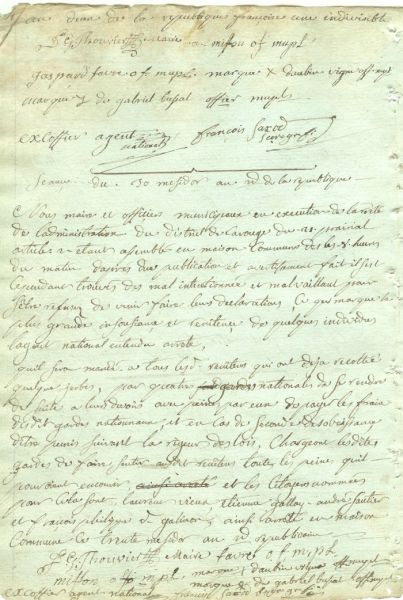 an deux de la republique francoise une indivisible
J. G. Thouvier Maire mifon of mupl
gaspard favre of mupl. marque x daubin vigne off mupl
marque de gabriel bussat officier mupl
excoffier agent national françois Saxod
Seance du 30 messidor an 2d de la republique
Nous maire et officiers municipaux en execution de larrete
de ladministration du district de Carouge du 21 prairial
article 2 etant assemblé en maison Commune des les 8 heures
du matin dapres due publication et avertissement fait il sest
cependant trouvé des mal intentionné et malvaillant pour
de venir faire leurs declarations, Ce qui marque la
plus grande insousiance et de quelques individus
lagent national entendu arrete,
quil sera mandé a tous lesd. qui ont deja recolté
quelque gerbes, par quatre gardes nationales de se rendre
de suite a leurs devoir avec peine par eux de payer les frais
desdit gardes nationaux, et en cas de seconde desobeissance
detre punis suivant la rigueur des lois, Chargeons lesdites
gardes de faire sentir toute les peines quil
pourront encourir, ainsi arreté et les Citoyens nommés
pour Cela sont laurent vieux etienne gallay andré Sautier
et francois philippe d. galinor, ainsi arreté en maison
Commune Ce trente messidor an 2d republicain
J. G. Thouvier Maire favre of mupl
mifon of mupl marque x daubin vigne off mupl
marque de gabriel bussat off mupl
excoffier agent national françois Saxod